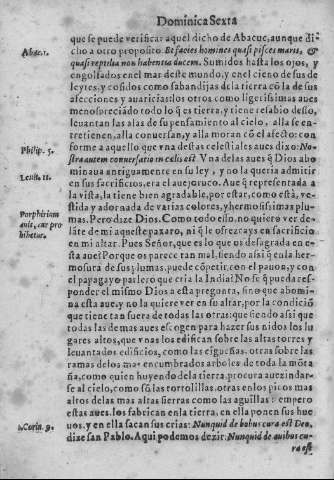 Dominica Sexta
que se puede verificar aquel dicho de Abacuc, aunque di-
Abac. 1.
cho a otro proposito. Et facies homines quasi pisces maris, &
quasi reptilia non habentia ducem. Sumidos hasta los ojos, y
engolfados en el mar deste mundo, y en el cieno de sus de
leytes, y cosidos como sabandijas de la tierra cõ la de sus
afecciones y auaricias: los otros como ligerissimas aues
menospreciãdo todo lo q̃ es tierra, y tiene resabio dello,
leuantan las alas de su pensamiento al cielo, alla se en-
tretienen, alla conuersan, y alla moran cõ el afecto: con
forme a aquello que vna destas celestiales aues dixo: No-
Philip. 3.
stra autem conuersatio in celis est. Vna de las aues q̃ Dios abo
Leuit. 11.
minaua antiguamente en su ley, y no la queria admitir
en sus sacrificios, era el auejoruco. Aue q̃ representada a
la vista, la tiene bien agradable, por estar, como està, ve-
stida y adornada de varias colores, y hermosissimas plu-
Porphirium
auis, cur pro
hibetur.
mas. Pero dize Dios. Como todo esso, no quiero ver de-
lãte de mi aqueste paxaro, ni q̃ le ofrezcays en sacrificio
en mi altar. Pues Señor, que es lo que os desagrada en e-
sta aue? Porque os parece tan mal, siendo assi q̃ en la her-
mosura de sus plumas, puede cõpetir con el pauon, y con
el papagayo parlero que cria la India? No se q̃ pueda res-
ponder el mismo Dios a esta pregunta, sino que abomi-
na esta aue, y no la quiere ver en su altar, por la condiciõ
que tiene tan fuera de todas las otras: que siendo assi que
todas las demas aues escogen para hazer sus nidos los lu
gares altos, que vnas los edifican sobre las altas torres y
leuantados edificios, como las cigueñas, otras sobre las
ramas de los mas encumbrados arboles de toda la mõta
ña, como quien huyendo de la tierra, procura auezindar-
se al cielo, como sõ las tortolillas, otras en los picos mas
altos de las mas altas sierras como las aguillas: empero
estas aues, los fabrican en la tierra, en ella ponen sus hue
uos, y en ella sacan sus crias. Nunquid de bobus cura est Deo,
1. Corin. 9.
dize san Pablo. Aqui podemos dezir. Nunquid de auibus cu-
ra est